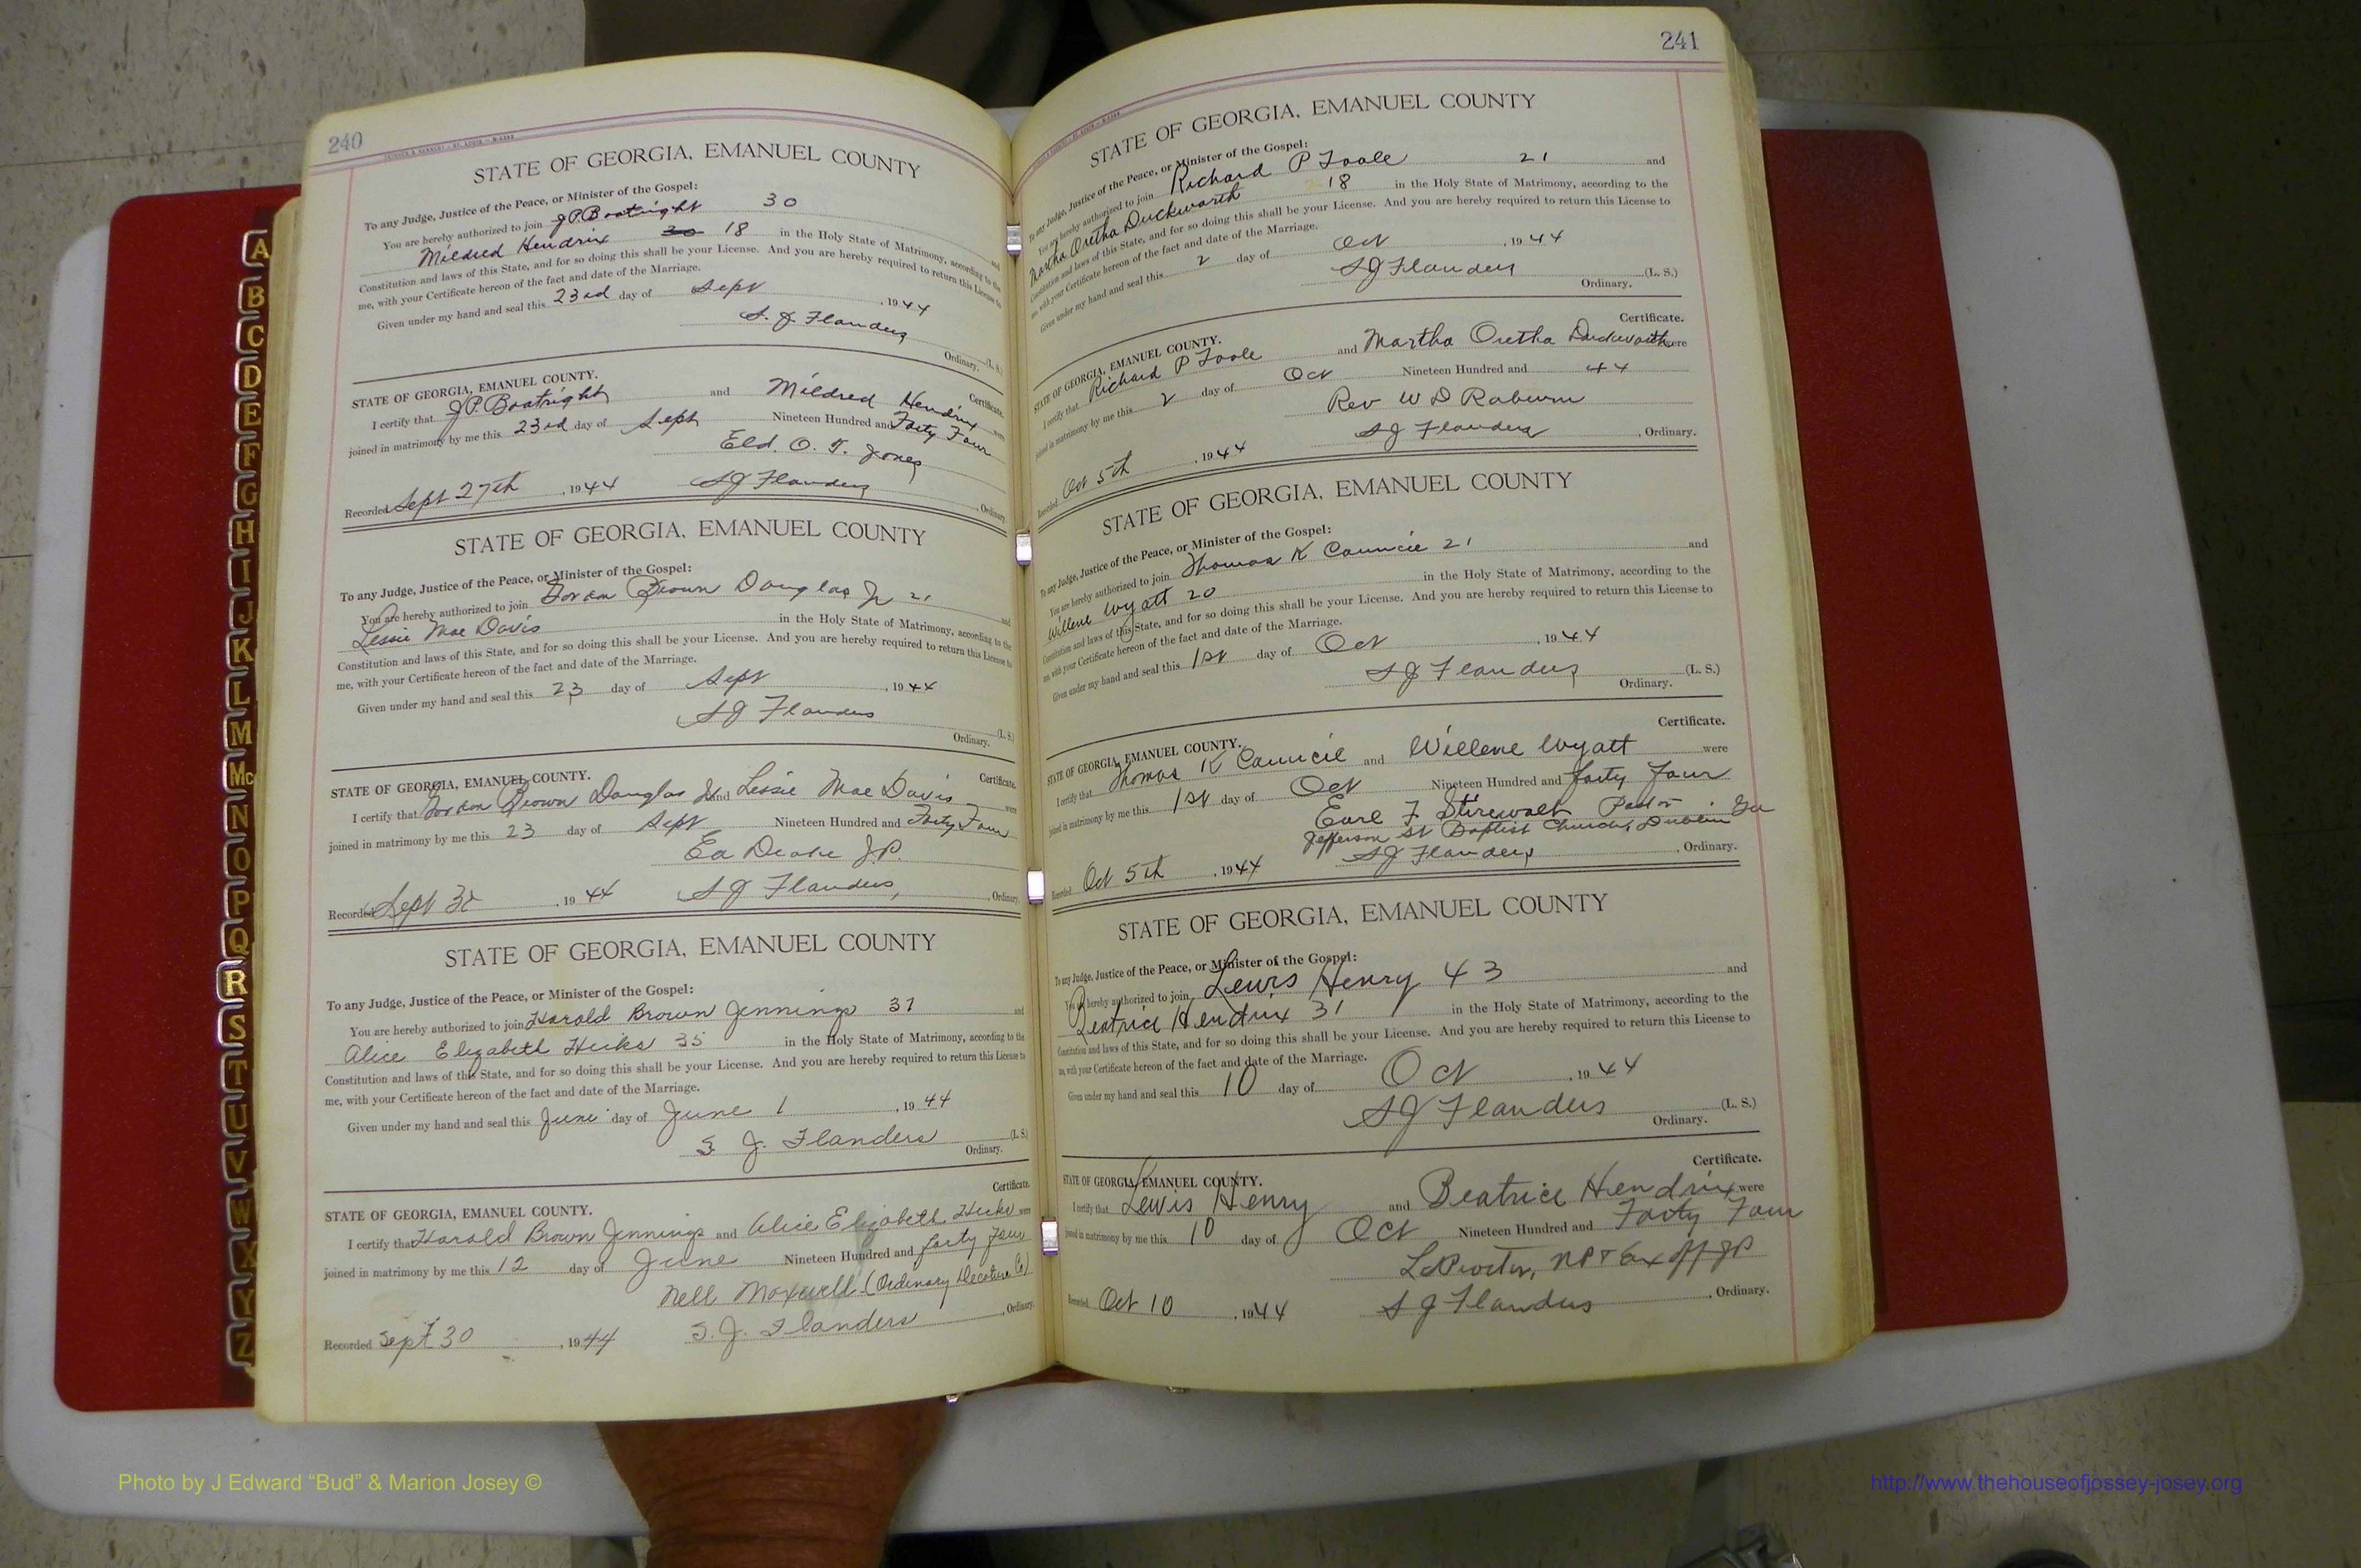 240
STATE OF GEORGIA, EMANUEL COUNTY
To any Judge, Justice of the Peace, or Minister of the Gospel:
You are hereby authorized to join J.P. Boatright 30 and
Mildred Hendrix 30 18 in the Holy State of Matrimony, according to the
Constitution and laws of this State, and for so doing this shall be your License. And you are hereby required to return this License to
me, with your Certificate hereon of the fact and date of the Marriage.
Given under my hand and seal this 23rd day of Sept , 1944
S. J. Flanders (L. S.)
Ordinary.
Certificate.
STATE OF GEORGIA, EMANUEL COUNTY.
I certify that J.P. Boatright and Mildred Hendrix were
joined in matrimony by me this 23rd day of Sept Nineteen Hundred and Forty Four
Eld. O. T. Jones
Recorded Sept 27th , 1944 S J Flanders , Ordinary.
STATE OF GEORGIA, EMANUEL COUNTY
To any Judge, Justice of the Peace, or Minister of the Gospel:
You are hereby authorized to join Brown Douglas Jr 21 and
Lessie Mae Davis in the Holy State of Matrimony, according to the
Constitution and laws of this State, and for so doing this shall be your License. And you are hereby required to return this License to
me, with your Certificate hereon of the fact and date of the Marriage.
Given under my hand and seal this 23 day of Sept , 1944
S J Flanders (L. S.)
Ordinary.
Certificate.
STATE OF GEORGIA, EMANUEL COUNTY.
I certify that Brown Douglas Jr and Lessie Mae Davis were
joined in matrimony by me this 23 day of Sept Nineteen Hundred and Forty Four
Ed J.P.
Recorded Sept 30 , 1944 S J Flanders, , Ordinary.
STATE OF GEORGIA, EMANUEL COUNTY
To any Judge, Justice of the Peace, or Minister of the Gospel:
You are hereby authorized to join Harold Brown Jennings 37 and
Alice Elizabeth Hicks 35 in the Holy State of Matrimony, according to the
Constitution and laws of this State, and for so doing this shall be your License. And you are hereby required to return this License to
me, with your Certificate hereon of the fact and date of the Marriage.
Given under my hand and seal this June day of June 1 , 1944
S. J. Flanders (L. S.)
Ordinary.
Certificate.
STATE OF GEORGIA, EMANUEL COUNTY.
I certify that Harold Brown Jennings and Alice Elizabeth Hicks were
joined in matrimony by me this 12 day of June Nineteen Hundred and forty four
Nell Maxwell (Ordinary Decatur Co)
Recorded Sept 30 , 1944 S. J. Flanders , Ordinary.
241
STATE OF GEORGIA, EMANUEL COUNTY
To any Judge, Justice of the Peace, or Minister of the Gospel:
You are hereby authorized to join Richard P Toole 21 and
Martha Oretha Duckworth 18 in the Holy State of Matrimony, according to the
Constitution and laws of this State, and for so doing this shall be your License. And you are hereby required to return this License to
me, with your Certificate hereon of the fact and date of the Marriage.
Given under my hand and seal this 2 day of Oct , 1944
S J Flanders (L. S.)
Ordinary.
Certificate.
STATE OF GEORGIA, EMANUEL COUNTY.
I certify that Richard P Toole and Martha Oretha Duckworth were
joined in matrimony by me this 2 day of Oct Nineteen Hundred and 44
Rev W D Raburn
Recorded Oct 5th , 1944 S J Flanders , Ordinary.
STATE OF GEORGIA, EMANUEL COUNTY
To any Judge, Justice of the Peace, or Minister of the Gospel:
You are hereby authorized to join Thomas K Council 21 and
Willene Wyatt 20 in the Holy State of Matrimony, according to the
Constitution and laws of this State, and for so doing this shall be your License. And you are hereby required to return this License to
me, with your Certificate hereon of the fact and date of the Marriage.
Given under my hand and seal this 1st day of Oct , 1944
S J Flanders (L. S.)
Ordinary.
Certificate.
STATE OF GEORGIA, EMANUEL COUNTY.
I certify that Thomas K Council and Willene Wyatt were
joined in matrimony by me this 1st day of Oct Nineteen Hundred and forty four
Earl F Stirewalt Pastor
Jefferson St Baptist Church, Dublin Ga
Recorded Oct 5th , 1944 S J Flanders , Ordinary.
STATE OF GEORGIA, EMANUEL COUNTY
To any Judge, Justice of the Peace, or Minister of the Gospel:
You are hereby authorized to join Lewis Henry 43 and
Beatrice Hendrix 31 in the Holy State of Matrimony, according to the
Constitution and laws of this State, and for so doing this shall be your License. And you are hereby required to return this License to
me, with your Certificate hereon of the fact and date of the Marriage.
Given under my hand and seal this 10 day of Oct , 1944
S J Flanders (L. S.)
Ordinary.
Certificate.
STATE OF GEORGIA, EMANUEL COUNTY.
I certify that Lewis Henry and Beatrice Hendrix were
joined in matrimony by me this 10 day of Oct Nineteen Hundred and Forty Four
L Proctor, NP & Ex off JP
Recorded Oct 10 , 1944 S J Flanders , Ordinary.
A
B
C
D
E
F
G
H
I
J
K
L
M
Mc
N
O
P
Q
R
S
T
U
V
W
X
Y
Z
Photo by J Edward “Bud” & Marion Josey ©
http://www.thehouseofjossey-josey.org